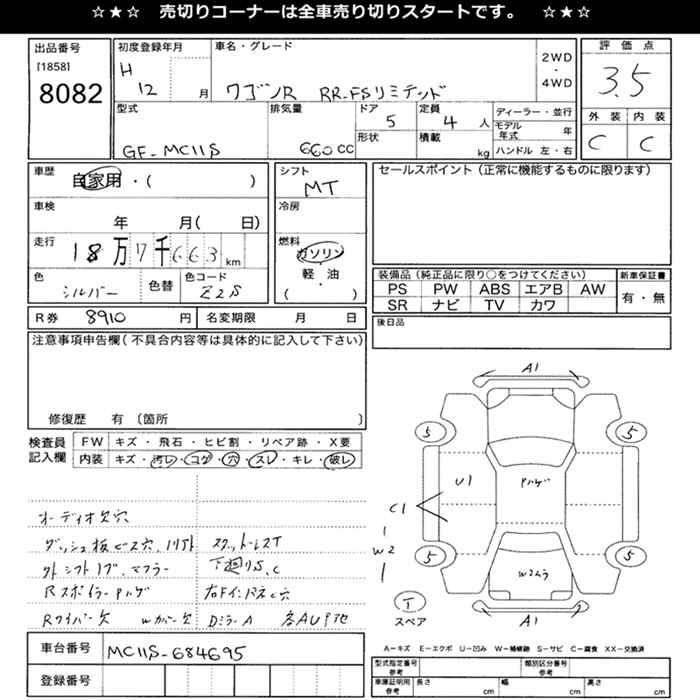 ☆★☆ 売切りコーナーは全車売り切りスタートです。 ☆★☆
出品番号
[1858]
8082
初度登録年月
H
12 月
車名・グレード
ワゴンR RR-FSリミテッド
2WD
・
4WD
評価点
3.5
外装 内装
C C
型式
GF-MC11S
排気量
660CC
ドア
5
形状
定員
4人
積載
kg
ディーラー・並行
モデル年式 年
ハンドル 左・右
車歴
自家用・( )
車検
年 月( 日)
走行
18万7千663km
色
シルバー
色替
色コード
Z2S
シフト
MT
冷房
燃料
ガソリン
・
軽油
・
( )
セールスポイント(正常に機能するものに限ります)
装備品(純正品に限り○をつけてください)
PS PW ABS エアB AW
SR ナビ TV カワ
新車保証書
有・無
R券 8910円
名変期限 月 日
後日品
注意事項申告欄(不具合内容等は具体的に記入して下さい)
修復歴 有 〔箇所 〕
検査員記入欄
FW キズ・飛石・ヒビ割・リペア跡・X要
内装 キズ・汚レ・コゲ・穴・スレ・キレ・破レ
オーディオ欠穴
ダッシュ板ビス穴、
外シフトノブ、マフラー
下廻りS、C
Rスポイラー
Rワイパー欠 Wカバー欠 DミラーA
A1
5
5
U1
C1
W2
5
5
T
スペア
A1
A-キズ E-エクボ U-凹み W-補修跡 S-サビ C-腐食 XX-交換済
車台番号
MC11S-684695
登録番号
型式指定番号
参考
類別区分番号
参考
車庫証明用
参考
長さ cm
幅 cm
高さ cm